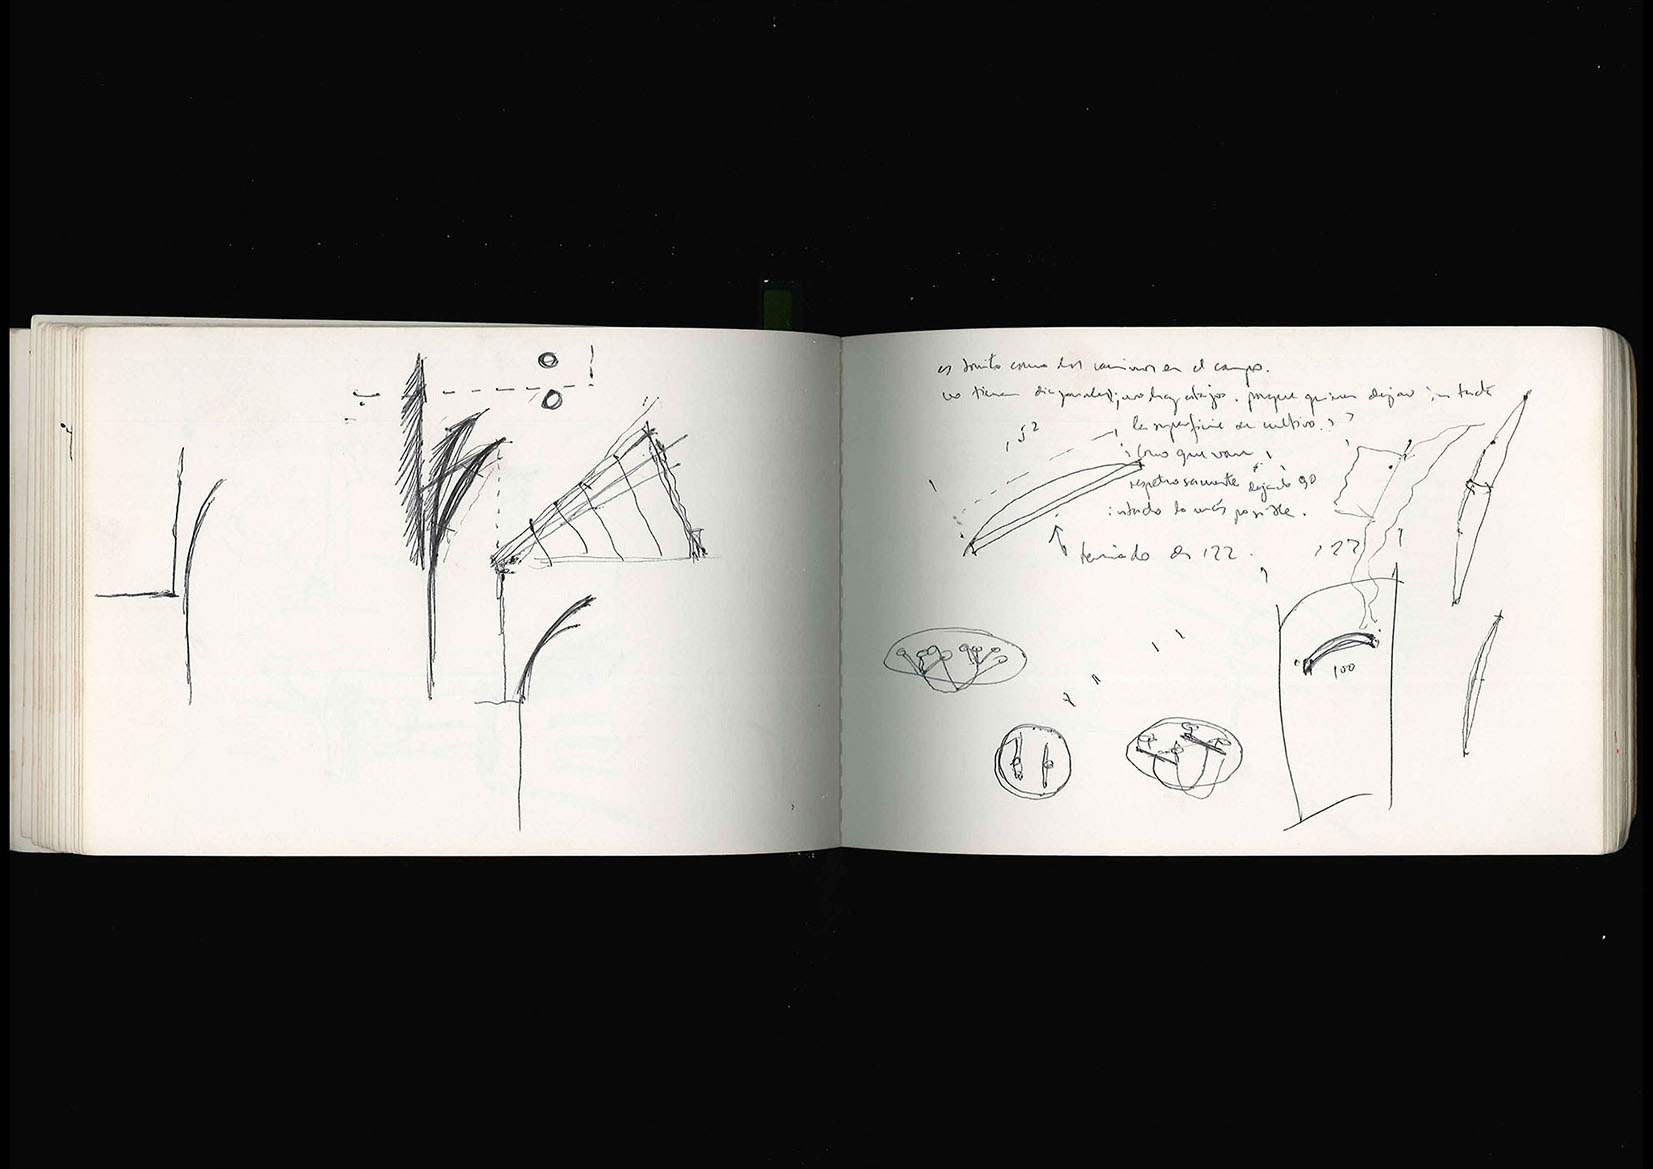 es bonito como los caminos en el campo.
no tienen diagonales, no hay atajos. porque quieren dejar intacta
la superficie de cultivo.
como que van
respetuosamente dejando
intacto lo más posible.
152
90
122
100